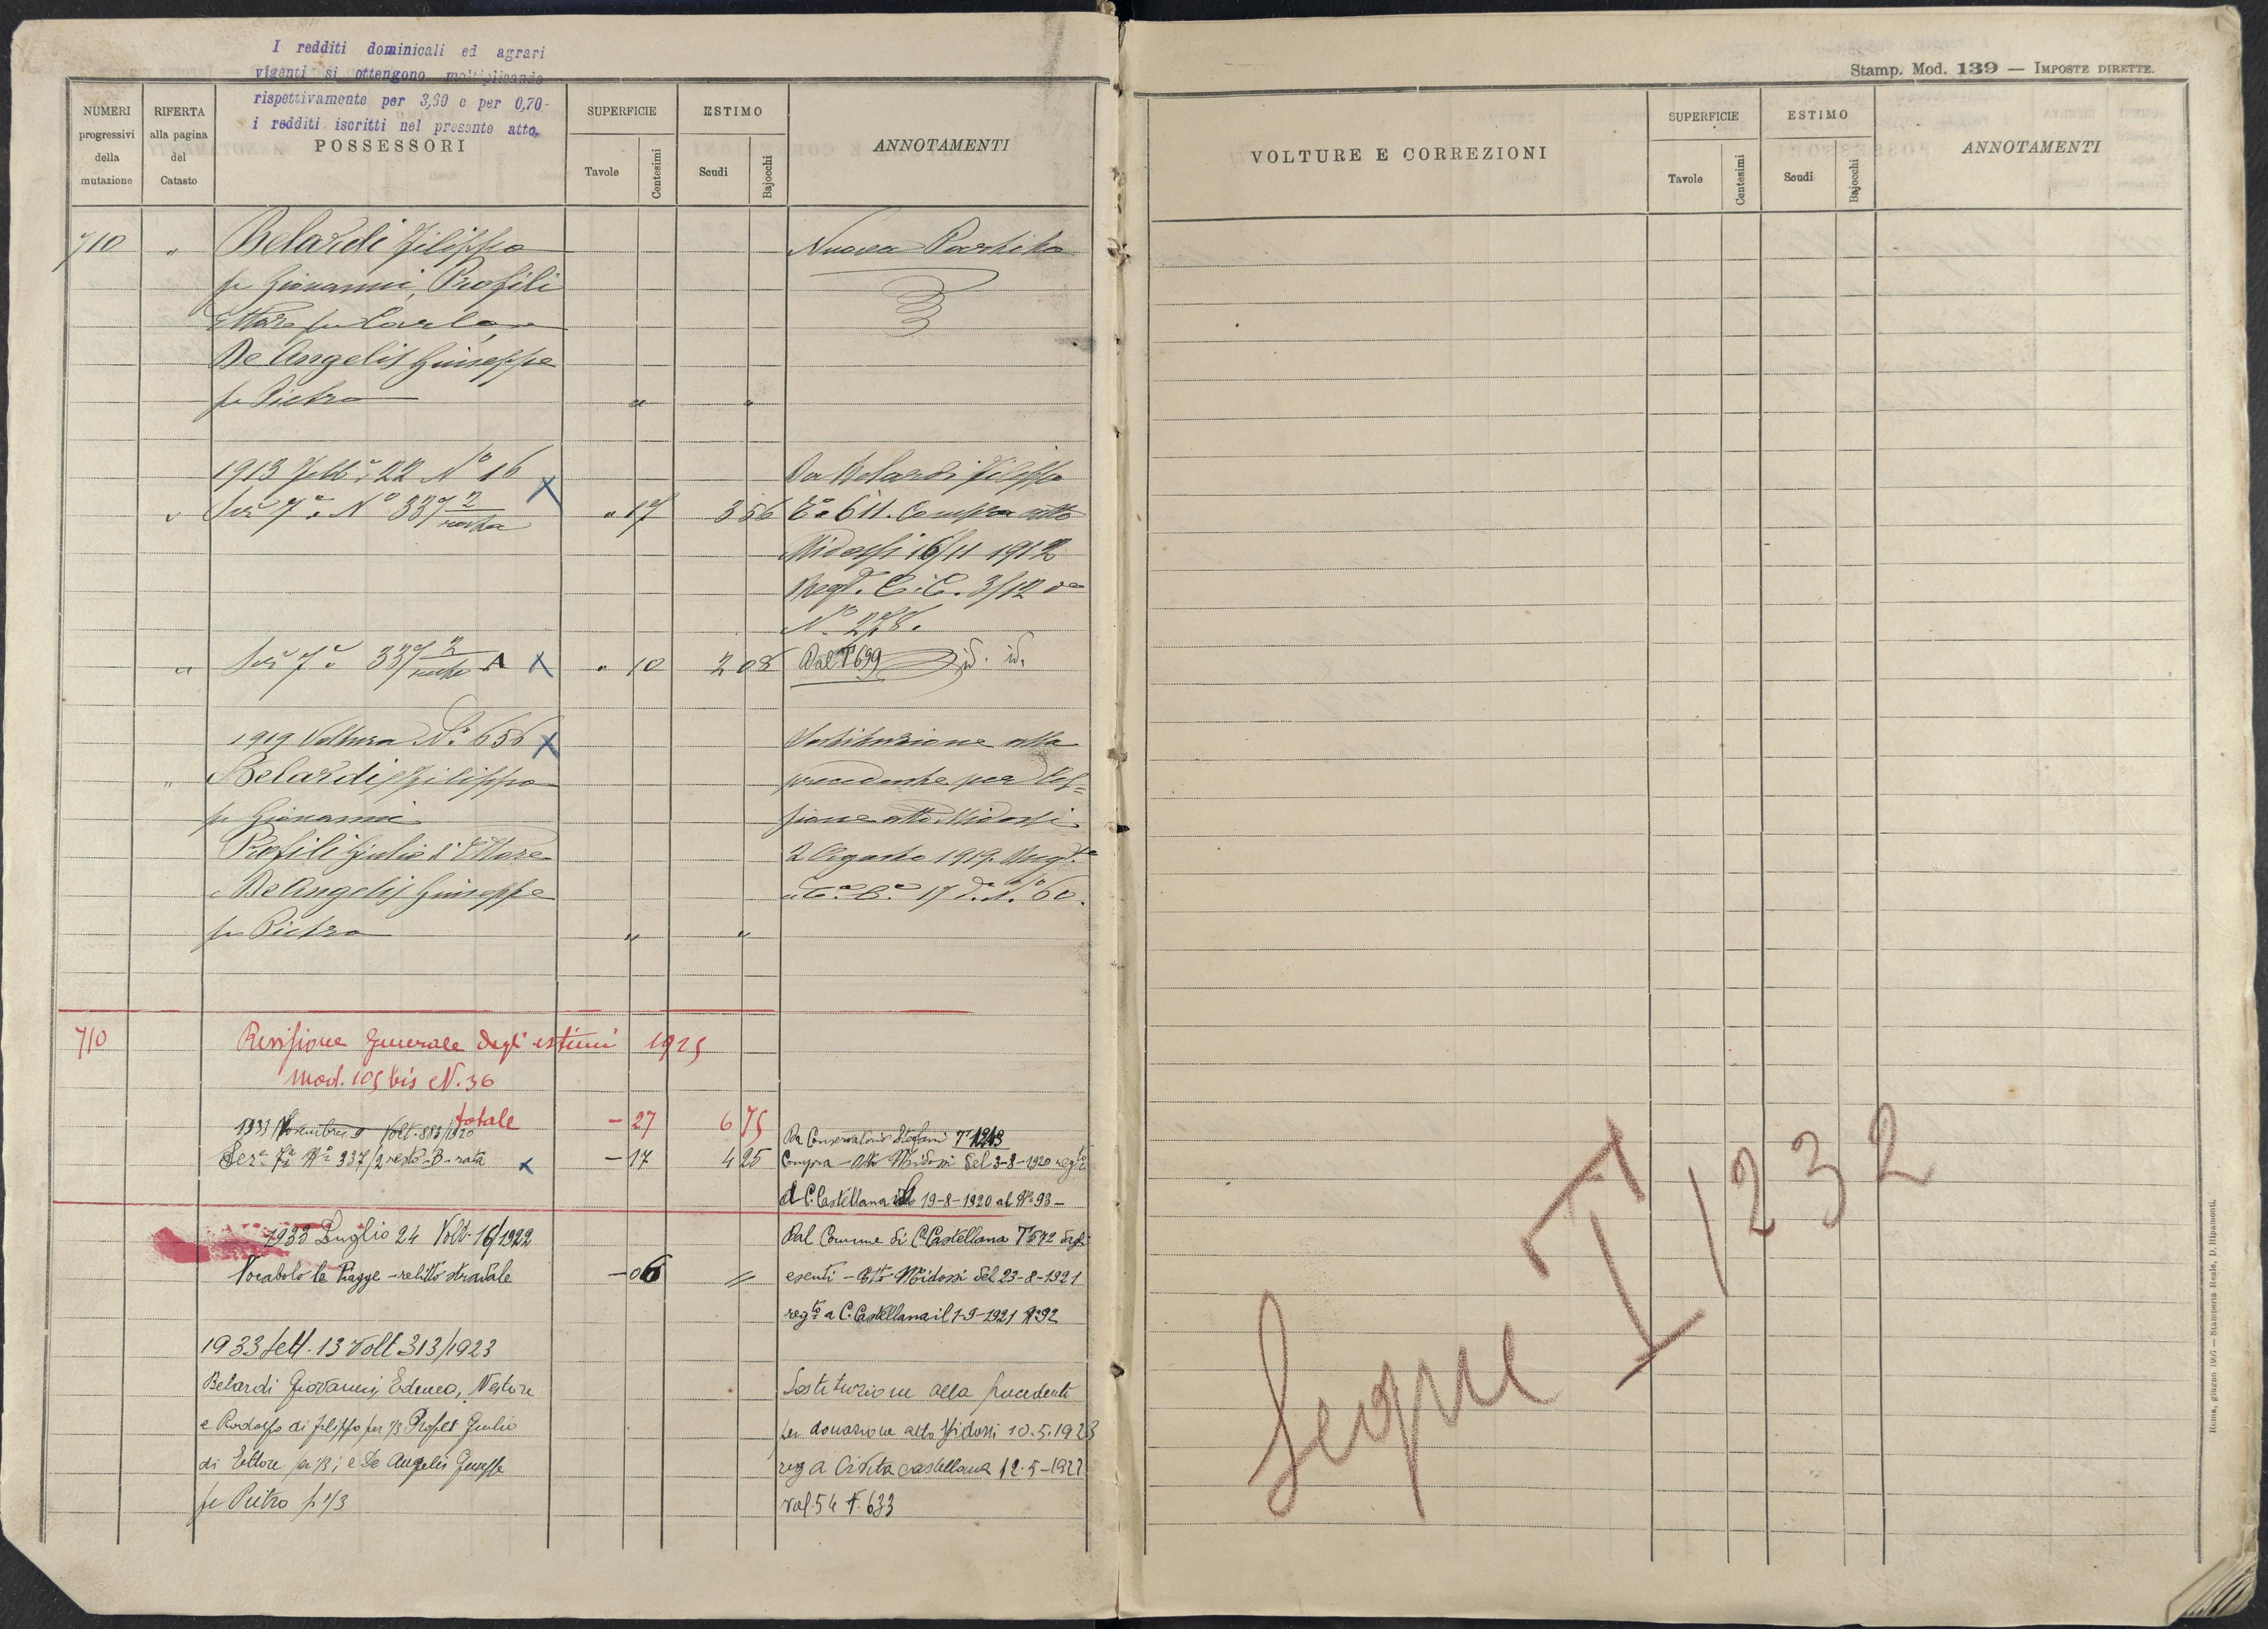 I redditi dominicali ed agrari
vigenti si ottengono moltiplicando
rispettivamente per 3,60 e per 0,70
i redditi iscritti nel presente atto.
NUMERI progressivi della mutazione
RIFERTA alla pagina del Catasto
POSSESSORI
SUPERFICIE
Tavole
Centesimi
ESTIMO
Scudi
Bajocchi
ANNOTAMENTI
710 " Belardi Filippo Nuova Partita
fu Giovanni, Profili
Ettore fu Carlo,
De Angelis Giuseppe
fu Pietro " "
1913 Febb. 22 N° 16 Da Belardi Filippo
" Sez. 7ª N° 337/2 resta " 17 3 56 Tª 611. Compra atto
Midossi 16/11 1912
Regt. C. C. 3/12 do
N° 278.
" Sez 7ª 337/2 resto A " 10 2 08 Dal T 699 id. id.
1919 Voltura N° 656 Sostituzione alla
" Belardi Filippo precedente per Ces=
fu Giovanni sione atto Midossi
Profili Giulio d'Ettore 2 Agosto 1919. Regt.
De Angelis Giuseppe a C. C. 17 d. N. 60.
fu Pietro " "
710 Revisione Generale degli estimi 1925
mod. 105 bis N. 36
totale - 27 6 75
1933 Novembre 9 Volt. 883/1920 Da Conservatorio Stefani T 1243
Sez. 7ª N° 337/2 resto-B-rata - 17 4 25 Compra - Atto Midossi del 3-8-1920 regto
a C. Castellana il 19-8-1920 al N° 93 -
1933 Luglio 24 Volt. 16/1922 Dal Comune di C. Castellana T 572 degli
Vocabolo le Piagge - relitto stradale - 06 = esenti - Atto Midossi del 23-8-1921
regto a C. Castellana il 1-9-1921 N° 92
1933 Sett. 13 Volt 313/1923
Belardi Giovanni, Edenea, Nestore Sostituzione alla precedente
e Rodolfo di Filippo per 1/3 Profili Giulio per donazione atto Midossi 10.5.1923
di Ettore per 1/3; e De Angelis Giuseppe reg a Civita castellana 12-5-1923
fu Pietro p 1/3 vol. 54 F. 633
Stamp. Mod. 139 — IMPOSTE DIRETTE.
VOLTURE E CORREZIONI
SUPERFICIE
Tavole
Centesimi
ESTIMO
Scudi
Bajocchi
ANNOTAMENTI
Segue T 1232
Roma, giugno 1907 — Stamperia Reale, D. Ripamonti.